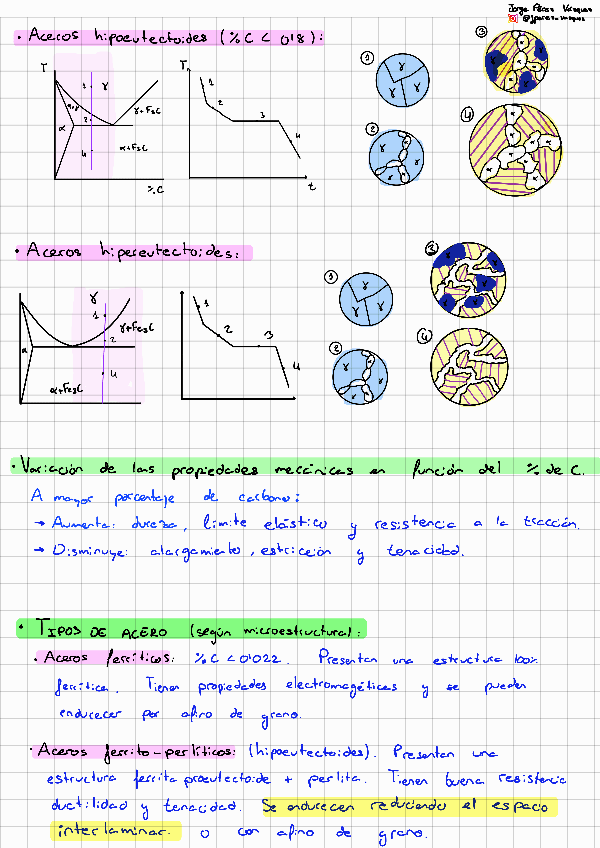 Jorge Pérez Vázquez
@jperez.vazquez
• Aceros hipoeutectoides (%C < 0'8):
T
1
γ
α+γ
2
γ+Fe3C
α
α+Fe3C
4
%C
T
1
2
3
4
t
①
γ
γ γ
②
α
γ
③
α
γ
④
α
• Aceros hipereutectoides:
γ
1
γ+Fe3C
2
α
4
α+Fe3C
1
2
3
4
①
γ
γ γ
②
γ
③
γ
④
• Variación de las propiedades mecánicas en función del % de C.
A mayor porcentaje de carbono:
→ Aumenta: dureza, límite elástico y resistencia a la tracción.
→ Disminuye: alargamiento, estricción y tenacidad.
• TIPOS DE ACERO (según microestructura):
• Aceros ferríticos: %C < 0'022. Presentan una estructura 100%
ferrítica. Tienen propiedades electromagéticas y se pueden
endurecer por afino de grano.
• Aceros ferrito-perlíticos: (hipoeutectoides). Presentan una
estructura ferrita proeutectoide + perlita. Tienen buena resistencia
ductilidad y tenacidad. Se endurecen reduciendo el espacio
interlaminar. o con afino de grano.